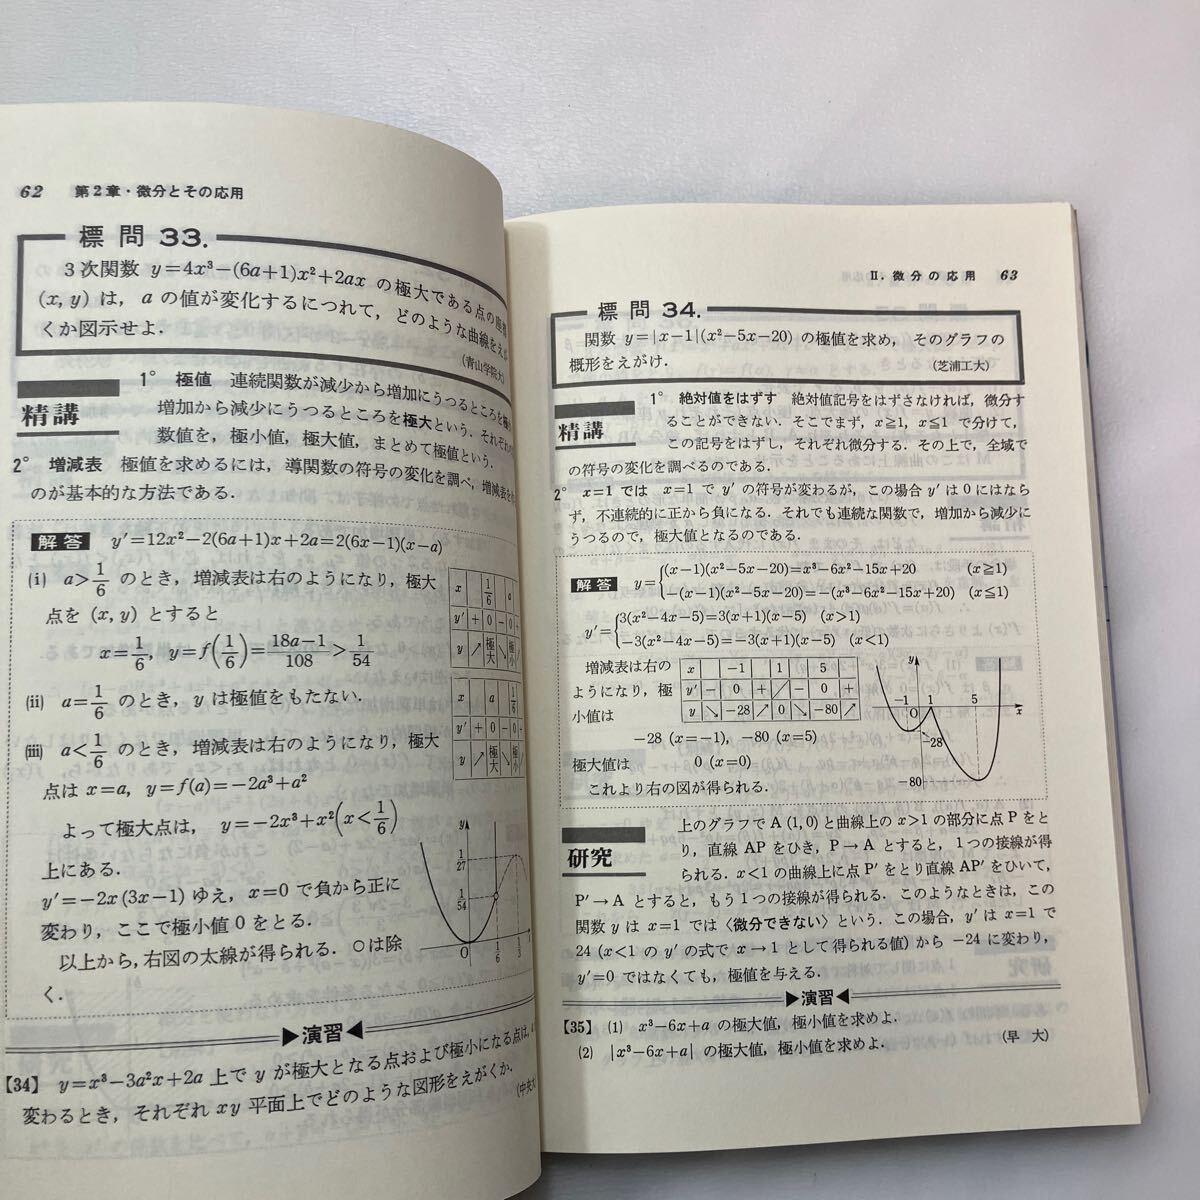 62 第2章・微分とその応用
標問 33.
3次関数 y=4x³−(6a+1)x²+2ax の極大である点の座標
(x, y) は, a の値が変化するにつれて, どのような曲線をえが
くか図示せよ.
(青山学院大)
精講
1° 極値 連続関数が減少から増加にうつるところを極
増加から減少にうつるところを極大という. それぞれの
数値を, 極小値, 極大値, まとめて極値という.
2° 増減表 極値を求めるには, 導関数の符号の変化を調べ, 増減表を
のが基本的な方法である.
解答 y′=12x²−2(6a+1)x+2a=2(6x−1)(x−a)
(i) a>1/6 のとき, 増減表は右のようになり, 極大
点を (x, y) とすると
x=1/6, y=f(1/6)=(18a−1)/108>1/54
x 1/6 a
y′ + 0 − 0
y ↗ 極大 ↘ 極小
(ii) a=1/6 のとき, y は極値をもたない.
(iii) a<1/6 のとき, 増減表は右のようになり, 極大
点は x=a, y=f(a)=−2a³+a²
x a 1/6
y′ + 0 − 0
y ↗ 極大 ↘ 極小
よって極大点は, y=−2x³+x²(x<1/6)
上にある.
y′=−2x(3x−1) ゆえ, x=0 で負から正に
変わり, ここで極小値 0 をとる.
以上から, 右図の太線が得られる. ○は除
く.
y
1/27
1/54
O 1/6 1/3
▶演習◀
【34】 y=x³−3a²x+2a 上で y が極大となる点および極小になる点は,
変わるとき, それぞれ xy 平面上でどのような図形をえがくか.
(中央大)
II. 微分の応用 63
標問 34.
関数 y=|x−1|(x²−5x−20) の極値を求め, そのグラフの
概形をえがけ.
(芝浦工大)
精講
1° 絶対値をはずす 絶対値記号をはずさなければ, 微分す
ることができない. そこでまず, x≧1, x≦1 で分けて,
この記号をはずし, それぞれ微分する. その上で, 全域で
の符号の変化を調べるのである.
2° x=1 では x=1 で y′ の符号が変わるが, この場合 y′ は 0 にはなら
ず, 不連続的に正から負になる. それでも連続な関数で, 増加から減少に
うつるので, 極大値となるのである.
解答 y={(x−1)(x²−5x−20)=x³−6x²−15x+20 (x≧1)
−(x−1)(x²−5x−20)=−(x³−6x²−15x+20) (x≦1)
y′={3(x²−4x−5)=3(x+1)(x−5) (x>1)
−3(x²−4x−5)=−3(x+1)(x−5) (x<1)
増減表は右の
ようになり, 極
小値は
x −1 1 5
y′ − 0 + ／ − 0 +
y ↘ −28 ↗ 0 ↘ −80 ↗
−28 (x=−1), −80 (x=5)
極大値は 0 (x=0)
これより右の図が得られる.
y
−1 1 5
O x
−28
−80
研究
上のグラフで A (1, 0) と曲線上の x>1 の部分に点 P をと
り, 直線 AP をひき, P→A とすると, 1つの接線が得
られる. x<1 の曲線上に点 P′ をとり直線 AP′ をひいて,
P′→A とすると, もう1つの接線が得られる. このようなときは, この
関数 y は x=1 では〈微分できない〉という. この場合, y′ は x=1 で
24 (x<1 の y′ の式で x→1 として得られる値) から −24 に変わり,
y′=0 ではなくても, 極値を与える.
▶演習◀
【35】 (1) x³−6x+a の極大値, 極小値を求めよ.
(2) |x³−6x+a| の極大値, 極小値を求めよ.
(早 大)